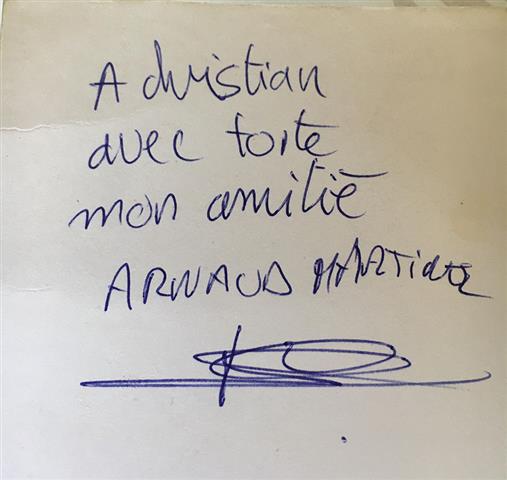 A christian
avec toute
mon amitié
ARNAUD